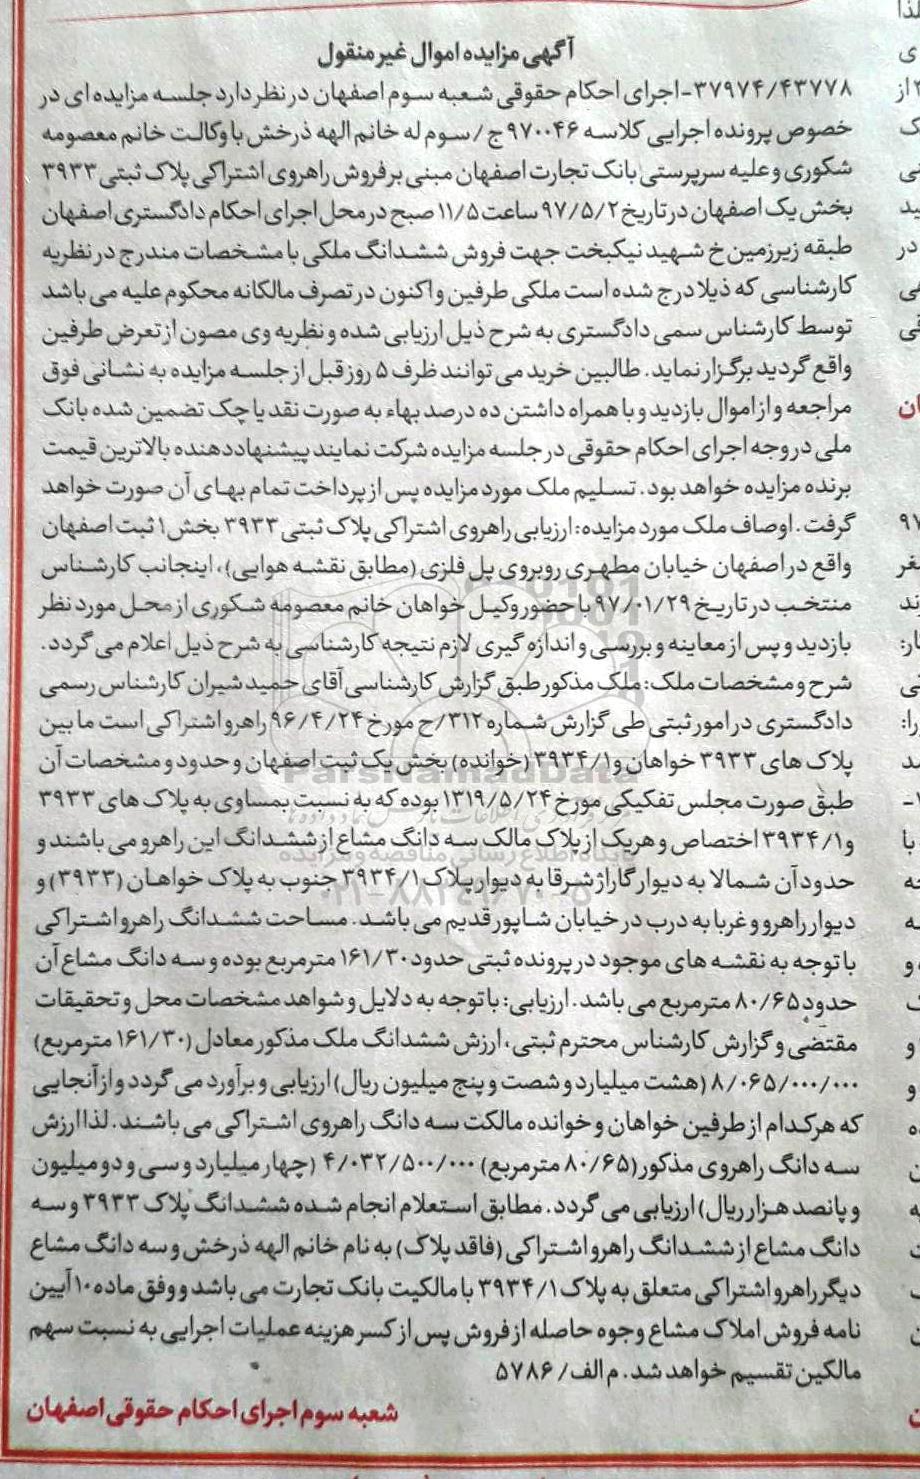 آگهی مزایده اموال غیر منقول
۳۷۹۷۴/۴۳۷۷۸-اجرای احکام حقوقی شعبه سوم اصفهان در نظر دارد جلسه مزایده ای در
خصوص پرونده اجرایی کلاسه ۹۷۰۰۴۶ ج/سوم له خانم الهه ذرخش با وکالت خانم معصومه
شکوری و علیه سرپرستی بانک تجارت اصفهان مبنی بر فروش راهروی اشتراکی پلاک ثبتی ۳۹۳۳
بخش یک اصفهان در تاریخ ۹۷/۵/۲ ساعت ۱۱/۵ صبح در محل اجرای احکام دادگستری اصفهان
طبقه زیرزمین خ شهید نیکبخت جهت فروش ششدانگ ملکی با مشخصات مندرج در نظریه
کارشناسی که ذیلا درج شده است ملکی طرفین و اکنون در تصرف مالکانه محکوم علیه می باشد
توسط کارشناس سمی دادگستری به شرح ذیل ارزیابی شده و نظریه وی مصون از تعرض طرفین
واقع گردید برگزار نماید. طالبین خرید می توانند ظرف ۵ روز قبل از جلسه مزایده به نشانی فوق
مراجعه و از اموال بازدید و با همراه داشتن ده درصد بهاء به صورت نقد یا چک تضمین شده بانک
ملی در وجه اجرای احکام حقوقی در جلسه مزایده شرکت نمایند پیشنهاد دهنده بالاترین قیمت
برنده مزایده خواهد بود. تسلیم ملک مورد مزایده پس از پرداخت تمام بهای آن صورت خواهد
گرفت. اوصاف ملک مورد مزایده: ارزیابی راهروی اشتراکی پلاک ثبتی ۳۹۳۳ بخش ۱ ثبت اصفهان
واقع در اصفهان خیابان مطهری روبروی پل فلزی (مطابق نقشه هوایی)، اینجانب کارشناس
منتخب در تاریخ ۹۷/۰۱/۲۹ با حضور وکیل خواهان خانم معصومه شکوری از محل مورد نظر
بازدید و پس از معاینه و بررسی و اندازه گیری لازم نتیجه کارشناسی به شرح ذیل اعلام می گردد.
شرح و مشخصات ملک: ملک مذکور طبق گزارش کارشناسی آقای حمید شیران کارشناس رسمی
دادگستری در امور ثبتی طی گزارش شماره ۳۱۲/ح مورخ ۹۶/۴/۲۴ راهرو اشتراکی است ما بین
پلاک های ۳۹۳۳ خواهان و ۳۹۳۴/۱ (خوانده) بخش یک ثبت اصفهان و حدود و مشخصات آن
طبق صورت مجلس تفکیکی مورخ ۱۳۱۹/۵/۲۴ بوده که به نسبت بمساوی به پلاک های ۳۹۳۳
و ۳۹۳۴/۱ اختصاص و هریک از پلاک مالک سه دانگ مشاع از ششدانگ این راهرو می باشند و
حدود آن شمالا به دیوار گاراژ شرقا به دیوار پلاک ۳۹۳۴/۱ جنوب به پلاک خواهان (۳۹۳۳) و
دیوار راهرو و غربا به درب در خیابان شاپور قدیم می باشد. مساحت ششدانگ راهرو اشتراکی
با توجه به نقشه های موجود در پرونده ثبتی حدود ۱۶۱/۳۰ مترمربع بوده و سه دانگ مشاع آن
حدود ۸۰/۶۵ مترمربع می باشد. ارزیابی: با توجه به دلایل و شواهد مشخصات محل و تحقیقات
مقتضی و گزارش کارشناس محترم ثبتی، ارزش ششدانگ ملک مذکور معادل (۱۶۱/۳۰ مترمربع)
۸/۰۶۵/۰۰۰/۰۰۰ (هشت میلیارد و شصت و پنج میلیون ریال) ارزیابی و برآورد می گردد و از آنجایی
که هرکدام از طرفین خواهان و خوانده مالکت سه دانگ راهروی اشتراکی می باشند. لذا ارزش
سه دانگ راهروی مذکور (۸۰/۶۵ مترمربع) ۴/۰۳۲/۵۰۰/۰۰۰ (چهار میلیارد و سی و دو میلیون
و پانصد هزار ریال) ارزیابی می گردد. مطابق استعلام انجام شده ششدانگ پلاک ۳۹۳۳ و سه
دانگ مشاع از ششدانگ راهرو اشتراکی (فاقد پلاک) به نام خانم الهه ذرخش و سه دانگ مشاع
دیگر راهرو اشتراکی متعلق به پلاک ۳۹۳۴/۱ با مالکیت بانک تجارت می باشد و وفق ماده ۱۰ آیین
نامه فروش املاک مشاع وجوه حاصله از فروش پس از کسر هزینه عملیات اجرایی به نسبت سهم
مالکین تقسیم خواهد شد. م الف/ ۵۷۸۶
شعبه سوم اجرای احکام حقوقی اصفهان
ParsNamadData
پایگاه اطلاع رسانی مناقصه و مزایده
۰۲۱-۸۸۳۴۹۶۷۰-۵